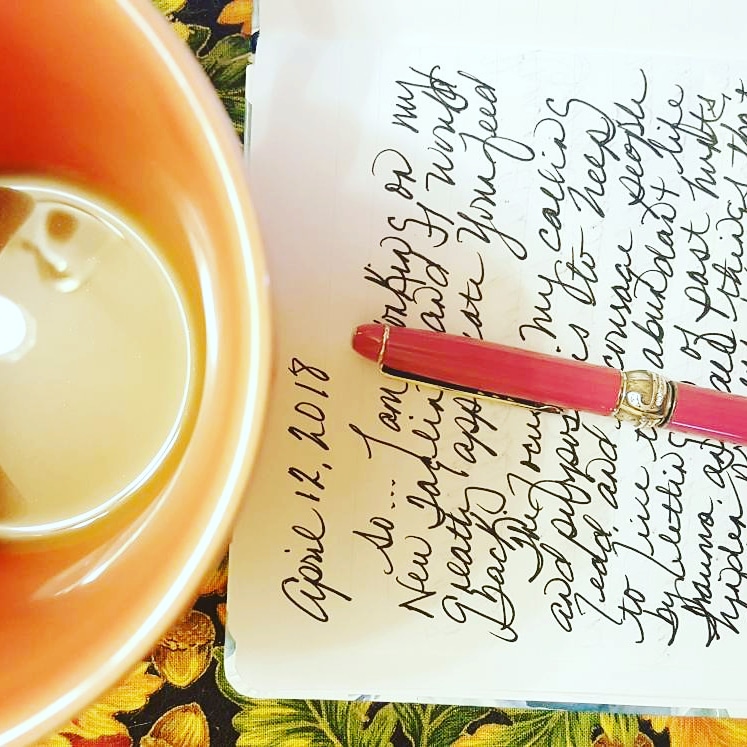 April 12, 2018
So... I am working on my
New tagline and It would
greatly appreciate your feed
back.
The Focus my calling
and purpose is to help
lead and encourage people
to live abundant life
by letting of past hurts,
trauma, things that
hinder